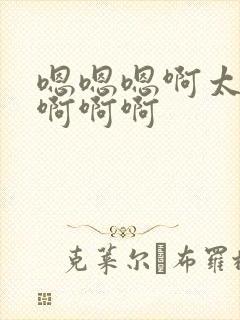 嗯嗯嗯啊太
啊啊啊
克莱尔·布罗